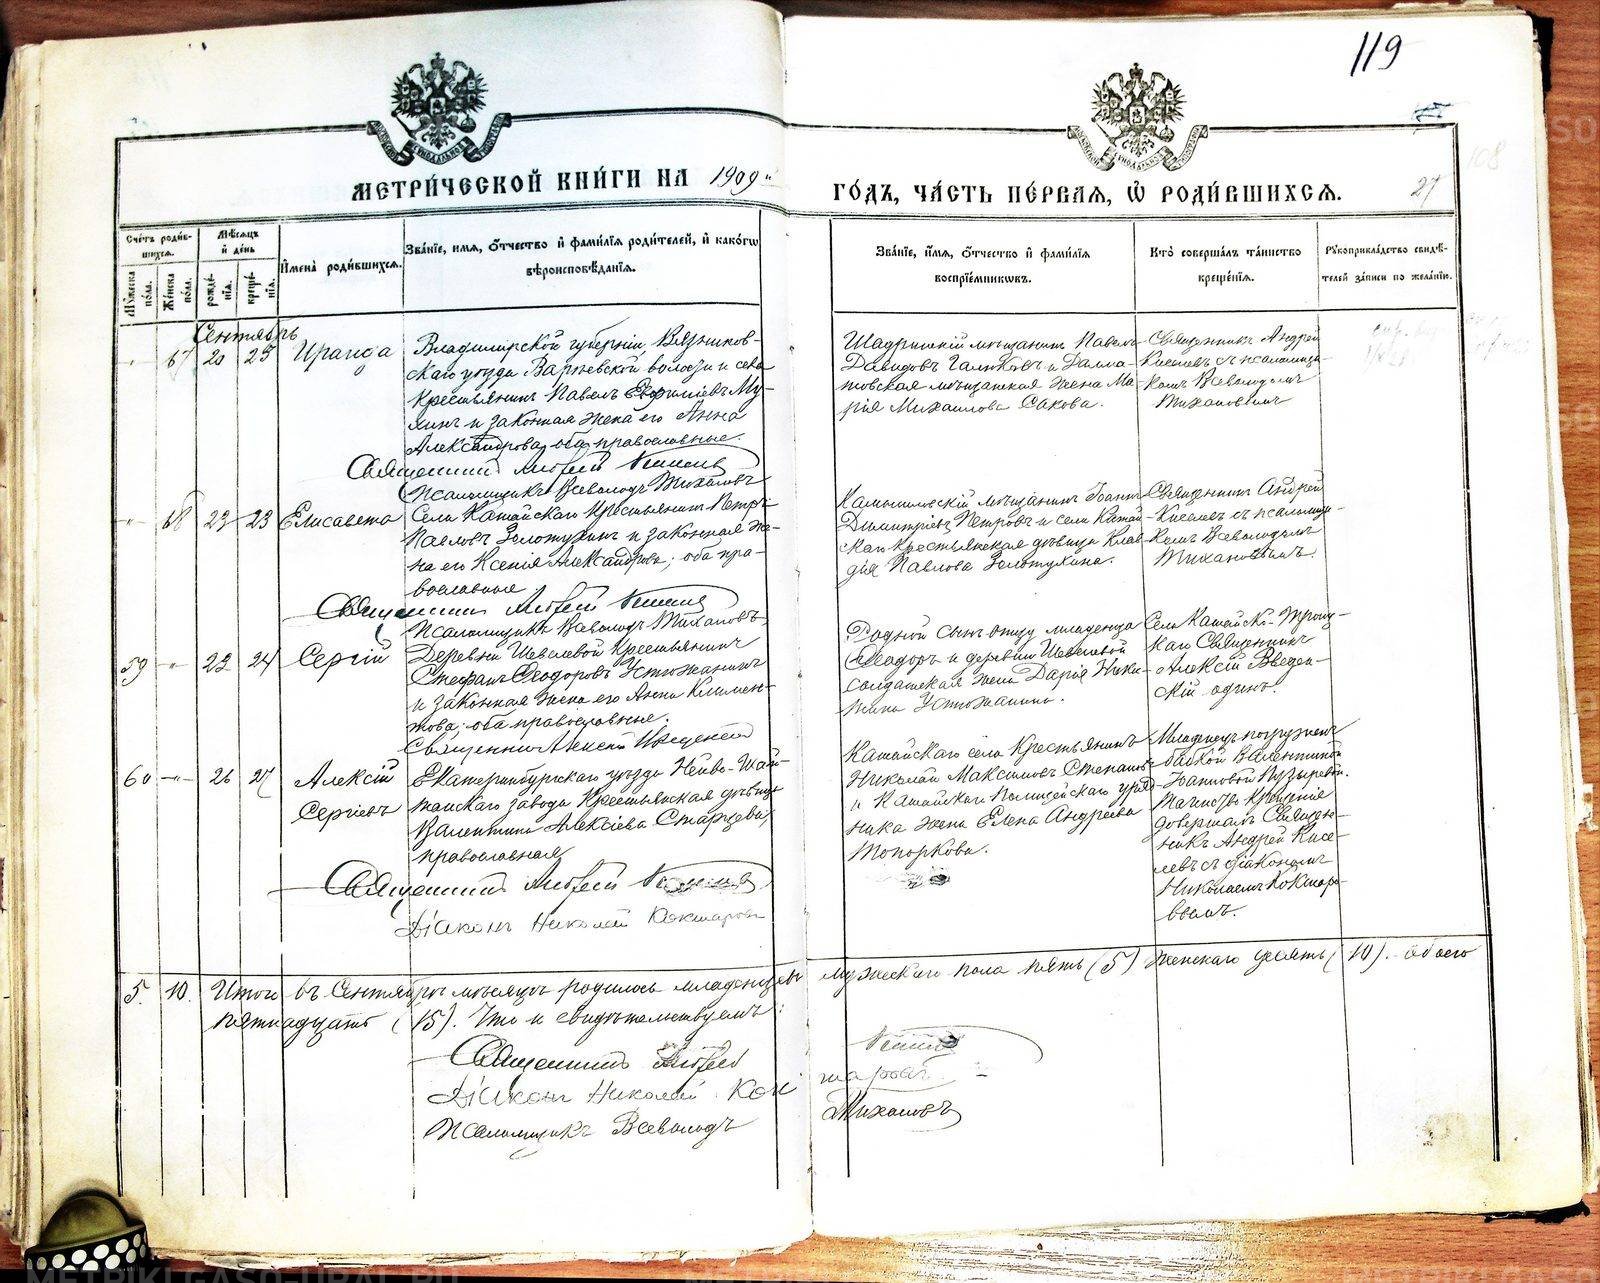 119
МЕТРИЧЕСКОЙ КНИГИ НА 1909й
ГОДЪ, ЧАСТЬ ПЕРВАЯ, Ѿ РОДИВШИХСЯ.
27
108
Счетъ родив-
шихся.
Мужеска пола.
Женска пола.
Мѣсяцъ
и день
рожде-
нія.
креще-
нія.
Имена родившихся.
Званіе, имя, отчество и фамилія родителей, и какогѡ
вѣроисповѣданія.
Званіе, имя, отчество и фамилія
воспріемникѡвъ.
Кто совершалъ таинство
крещенія.
Рукоприкладство свидѣ-
телей записи по желанію.
Сентябрь
" 67 20 23 Ираида
Владимирской губерніи, Вязников-
скаго уѣзда Варѣевской волости и села
крестьянинъ Павелъ
и законная жена его Анна
Александрова, оба православные.
Священникъ Андрей Киселевъ
Псаломщикъ Всеволодъ Тихановъ
Шадринскій мѣщанинъ Павелъ
Давидовъ Галюковъ и Далма-
товская мѣщанская жена Ма-
рія Михаилова Сакова.
Священникъ Андрей
Киселевъ съ псаломщи-
комъ Всеволодомъ
Тихановымъ
-"- 68 22 23 Елисавета
Села Катайскаго крестьянинъ Петръ
Павловъ Золотухинъ и законная же-
на его Ксенія Александрова; оба пра-
вославные
Священникъ Андрей Киселевъ
Псаломщикъ Всеволодъ Тихановъ
Камышловскій мѣщанинъ Іоаннъ
Димитріевъ Петровъ и села Катай-
скаго крестьянская дѣвица Клав-
дія Павлова Золотухина.
Священникъ Андрей
Киселевъ съ псаломщи-
комъ Всеволодомъ
Тихановымъ.
59 -"- 22 24 Сергій
Деревни Шевелевой крестьянинъ
Стефанъ Ѳеодоровъ Устюжанинъ
и законная жена его Анна Климен-
това; оба православные.
Священникъ Алексій Введенскій
Родной сынъ отцу младенца
Ѳеодоръ и деревни Шевелевой
солдатская жена Дарія Ники-
тина Устюжанина.
Села Катайско-Троиц-
каго Священникъ
Алексій Введен-
скій одинъ.
60 -"- 26 27 Алексій
Сергіевъ
Екатеринбургскаго уѣзда Нейво-Шай-
танскаго завода крестьянская дѣвица
Валентина Алексіева Старцева,
православная
Священникъ Андрей Киселевъ
Діаконъ Николай Кокшаровъ
Катайскаго села крестьянинъ
Николай Максимовъ Степановъ
и Катайскаго полицейскаго уряд-
ника жена Елена Андреева
Топоркова.
Младенецъ погруженъ
бабкой Валентиной
Іоанновой Пузыревой.
Таинство крещенія
довершалъ Священ-
никъ Андрей Кисе-
левъ съ діакономъ
Николаемъ Кокшаро-
вымъ.
5. 10. Итого въ Сентябрѣ мѣсяцѣ родилось младенцевъ мужескаго пола пять (5) женскаго десять (10). обоего
пятнадцать (15). Что и свидѣтельствуемъ:
Священникъ Андрей Киселевъ
Діаконъ Николай Кокшаровъ
Псаломщикъ Всеволодъ Тихановъ